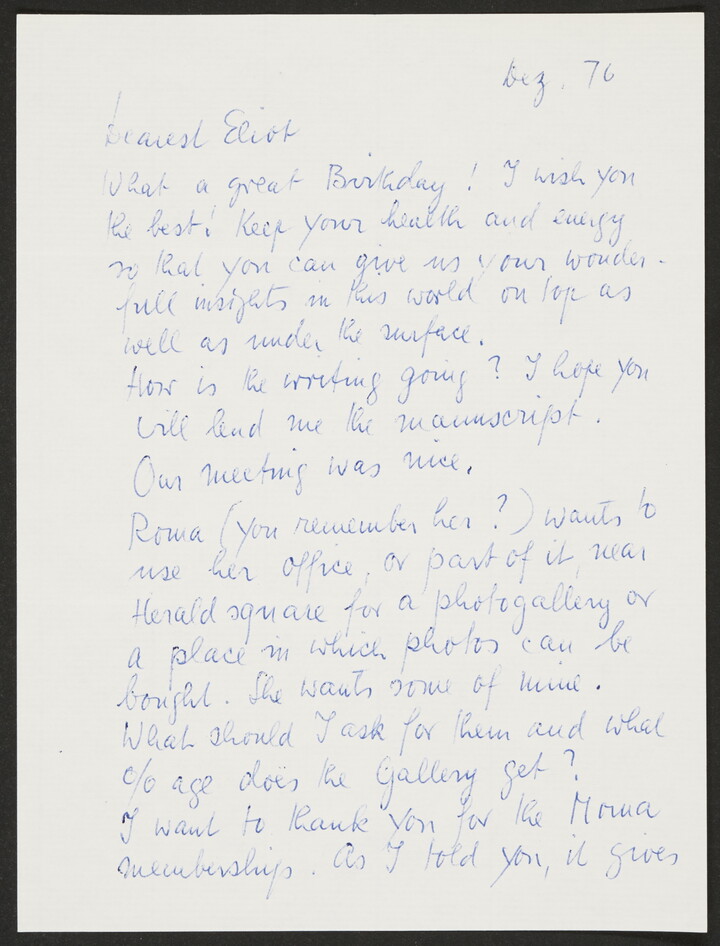 Dez. 76
Dearest Eliot
What a great Birthday! I wish you
the best! Keep your health and energy
so that you can give us your wonder-
full insights in this world on top as
well as under the surface.
How is the writing going? I hope you
will lend me the manuscript.
Our meeting was nice.
Roma (you remember her?) wants to
use her office, or part of it, near
Herald square for a photogallery or
a place in which photos can be
bought. She wants some of mine.
What should I ask for them and what
% age does the Gallery get?
I want to thank you for the Moma
membership. As I told you, it gives